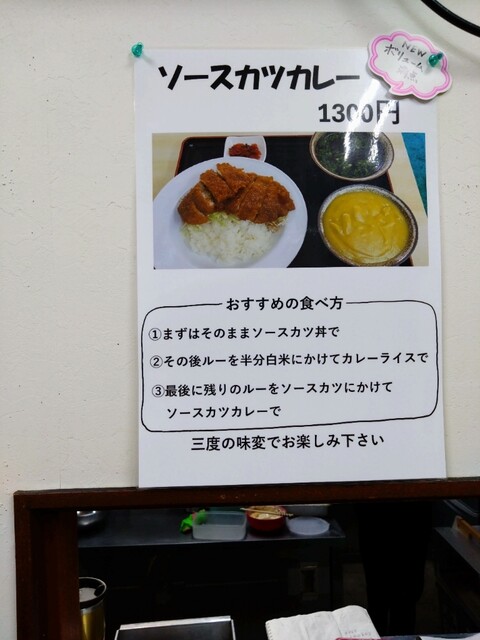 ソースカツカレー
NEW
ボリューム
満点
1300円
おすすめの食べ方
①まずはそのままソースカツ丼で
②その後ルーを半分白米にかけてカレーライスで
③最後に残りのルーをソースカツにかけて
ソースカツカレーで
三度の味変でお楽しみ下さい